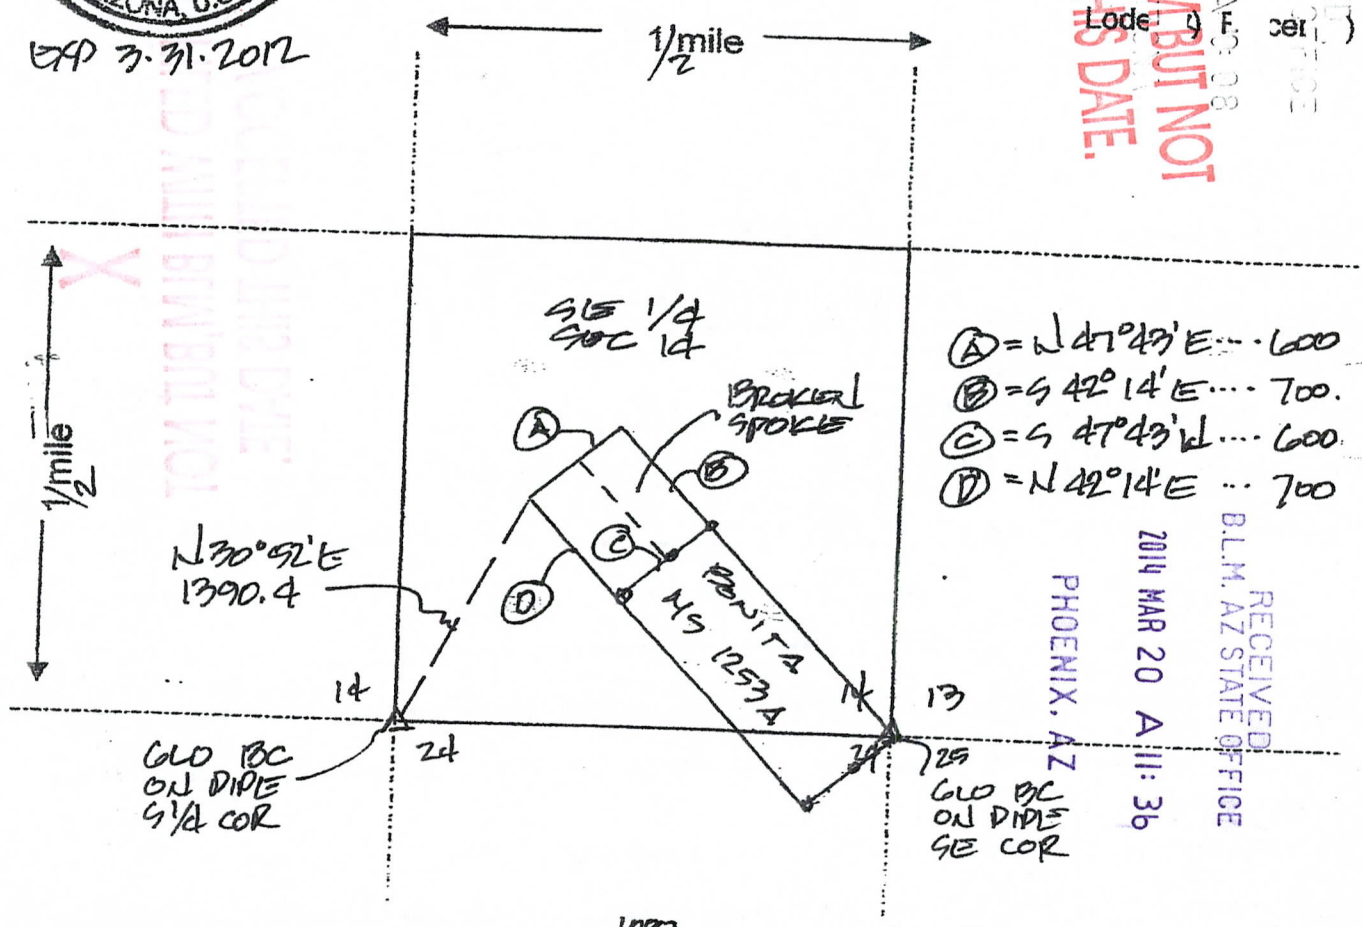 EXP 3.31.2012
1/2 mile
BUT NOT
HIS DATE.
1/2 mile
SE 1/4
SEC 14
BROKEN
SPOKE
A
B
C
D
A = N 47°43' E .... 600
B = S 42° 14' E .... 700.
C = S 47°43' W .... 600
D = N 42°14' E ... 700
N 30°52' E
1390.4
BONITA
MS 1253A
14
24
14
13
24
25
GLO BC
ON PIPE
S 1/4 COR
GLO BC
ON PIPE
SE COR
RECEIVED
B.L.M. AZ STATE OFFICE
2014 MAR 20 A 11: 36
PHOENIX, AZ